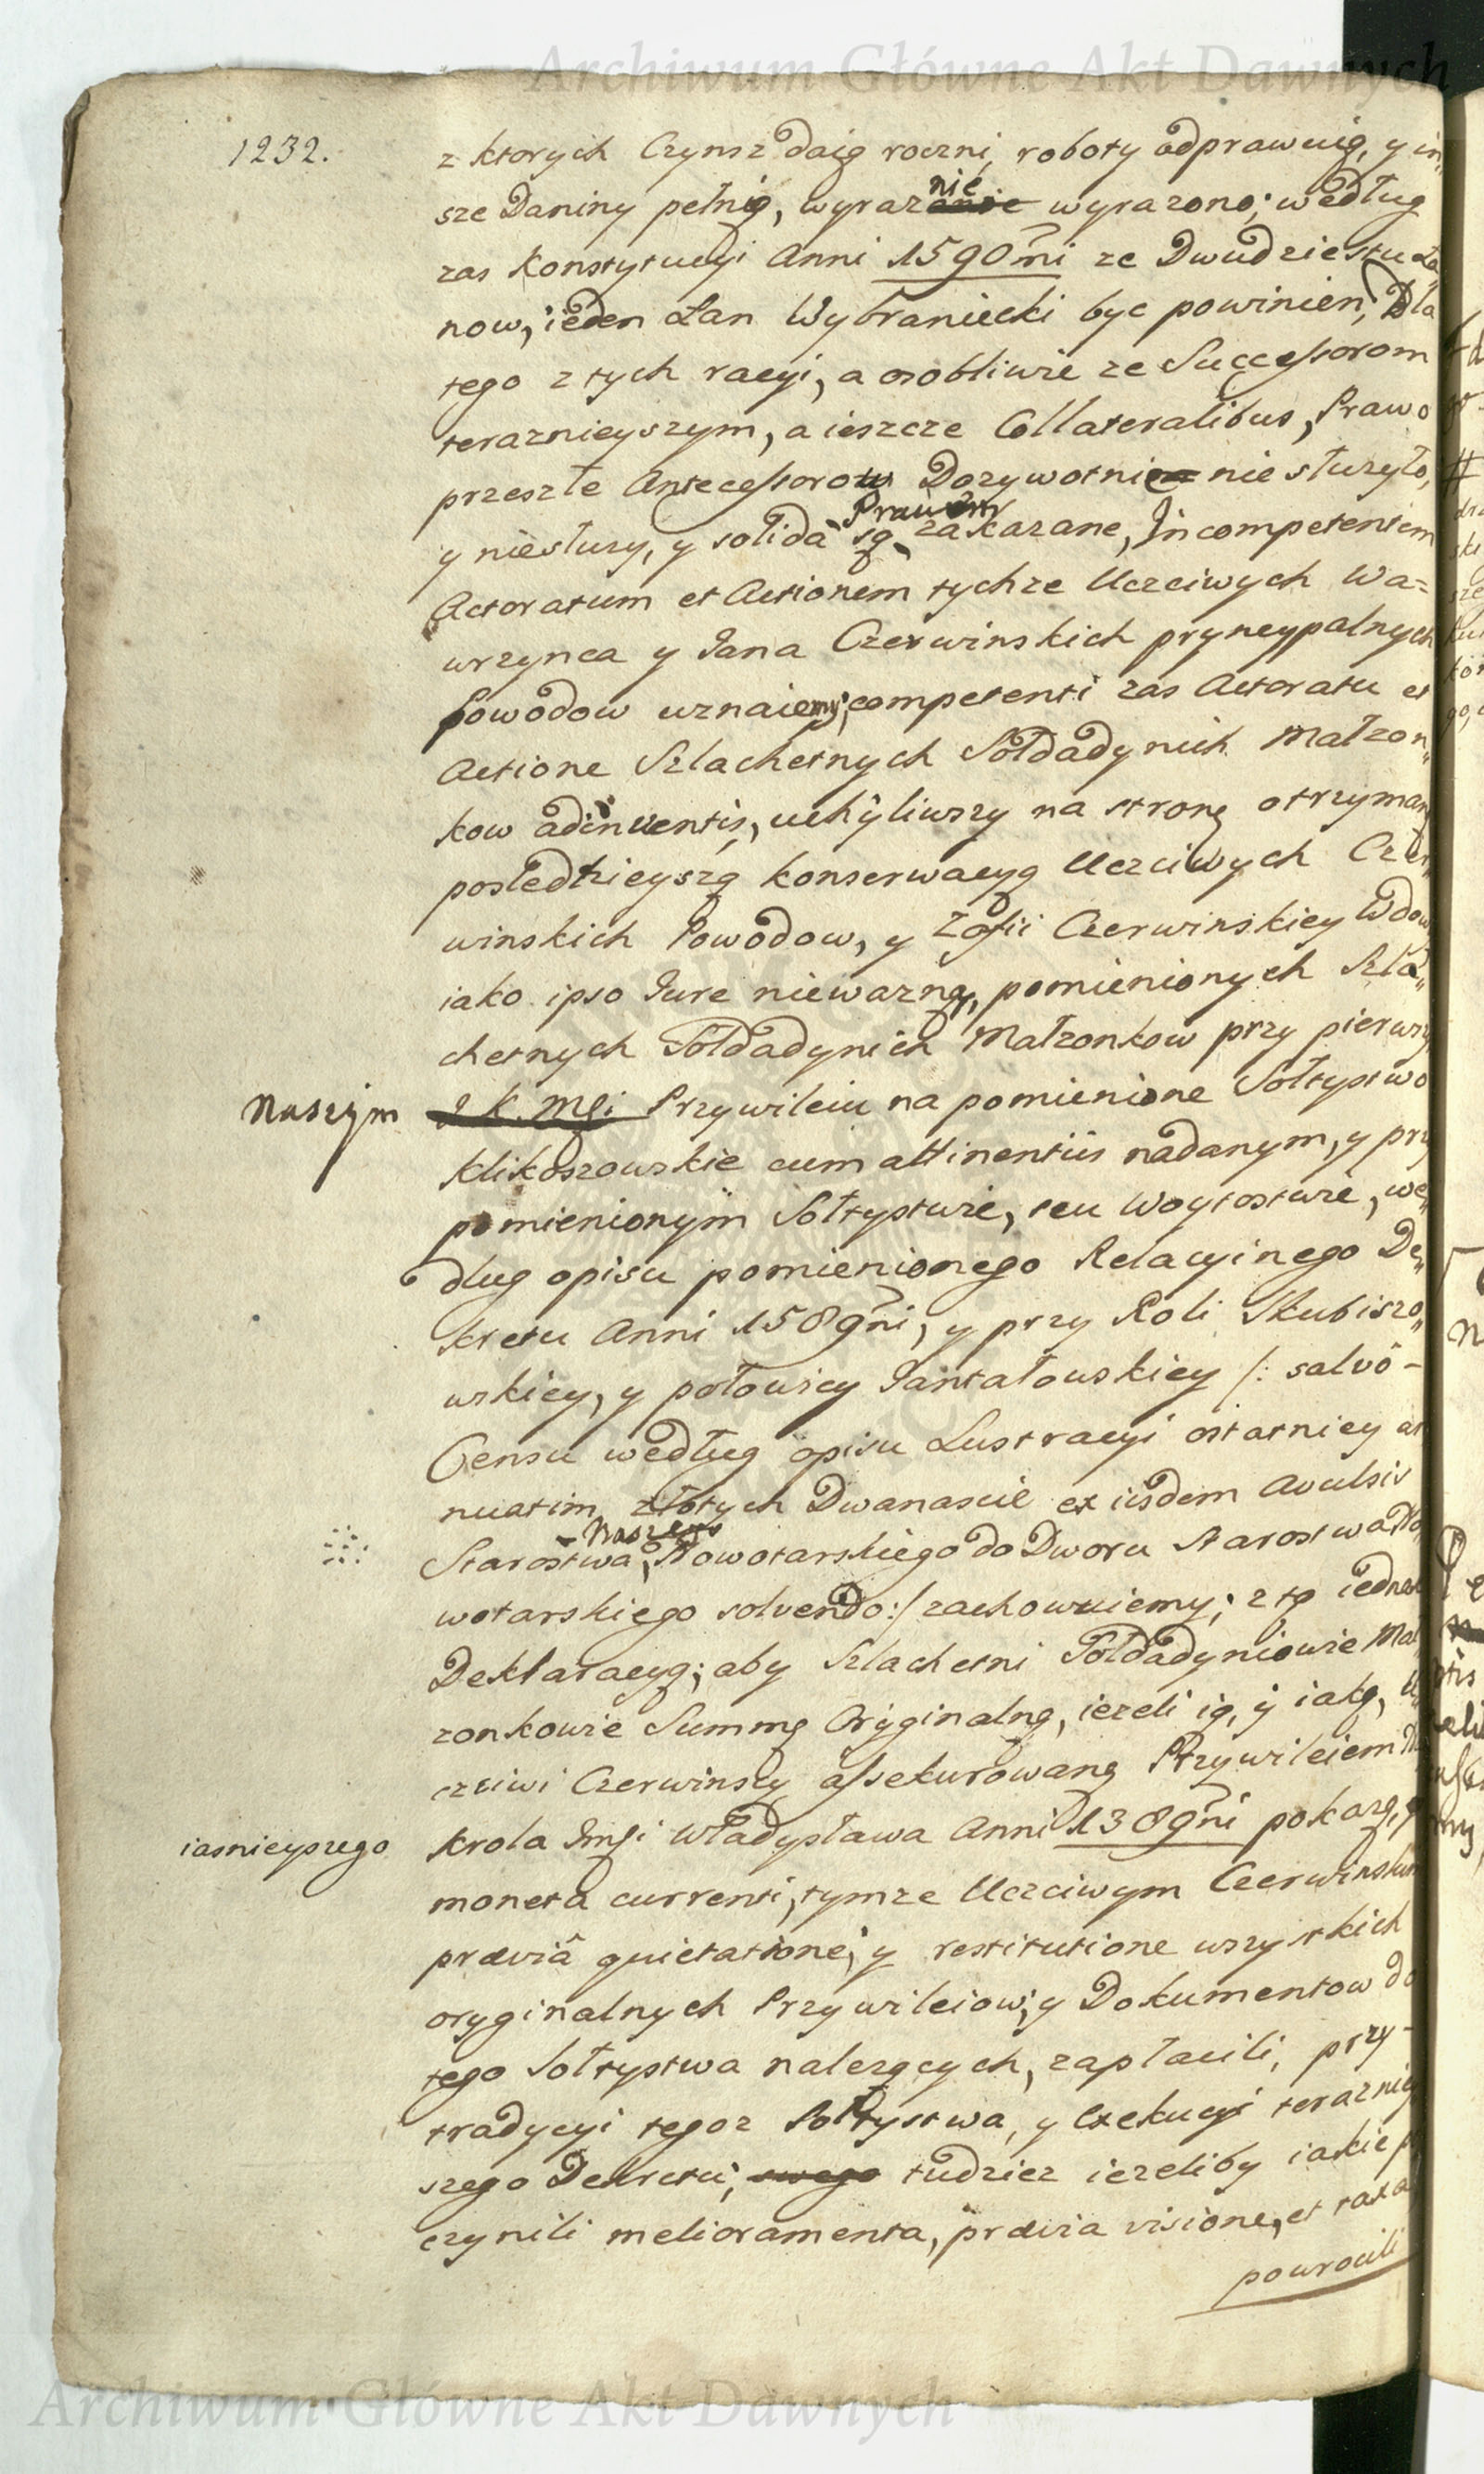 Archiwum Główne Akt Dawnych
1232.
z ktorych Czynsz daią roczni, roboty odprawuią, y in„
sze Daniny pełnią, wyraznie wyrazono; według
zas Konstytucyi Anni 1590mi ze Dwudziestu Ła
now, ieden Łan Wybraniecki byc powinien, Dla
tego z tych racyi, a osobliwie ze Successorom
teraznieyszym, a ieszcze Collateralibus, Prawo
przeszłe Antecessorow Dozywotnie nie słuzyło,
y niesłuzy, y solida są Prawem zakazane, Incompetentem
Actoratum et Actionem tychze Uczciwych Wa=
wrzynca y Jana Czerwinskich pryncypalnych
Powodow uznaiemy; competenti zas Actoratu et
Actione Szlachetnych Fołdadynich Małzon„
kow adinventis, uchyliwszy na stronę otrzyman
posledzieyszą konserwacyą Uczciwych Czer„
winskich Powodow, y Zofii Czerwinskiey Wdow
iako ipso Jure niewazną, pomienionych Szla„
chetnych Fołdadynich Małzonkow przy pierwszy
Naszym J. K. Mci Przywileiu na pomienione Sołtystwo
Klikoszowskie cum attinentiis nadanym, y przy
pomienionym Sołtystwie, seu Woytostwie, we„
dług opisu pomienionego Relacyinego De„
kretu Anni 1589ni, y przy Roli Skubiszo„
wskiey, y połowicy Jantałowskiey /: salvô -
Censu według opisu Lustracyi ostatniey an
nuatim złotych Dwanascie ex iisdem Avulsis
Starostwa Naszego Nowotarskiego do Dworu Starostwa No
wotarskiego solvendo :/ zachowuiemy; z tą iednak
Deklaracyą; aby Szlachetni Fołdadyniowie Mał
zonkowie Summę Oryginalną, iezeli ią, y iaką, U„
czciwi Czerwinscy assekurowaną Przywileiem
iasnieyszego Krola Jmci Władysława Anni 1389ni pokazą,
moneta currenti, tymze Uczciwym Czerwinskim
præviâ quietatione, y restitutione wszystkich
oryginalnych Przywileiow, y Dokumentow do
tego Sołtystwa nalezących, zapłacili, przy-
tradycyi tegoz Sołtystwa, y Exekucyi terazniey
szego Dekretu, swego tudziez iezeliby iakie p
czynili melioramenta, prævia visione, et taxa
powrocili
Archiwum Główne Akt Dawnych